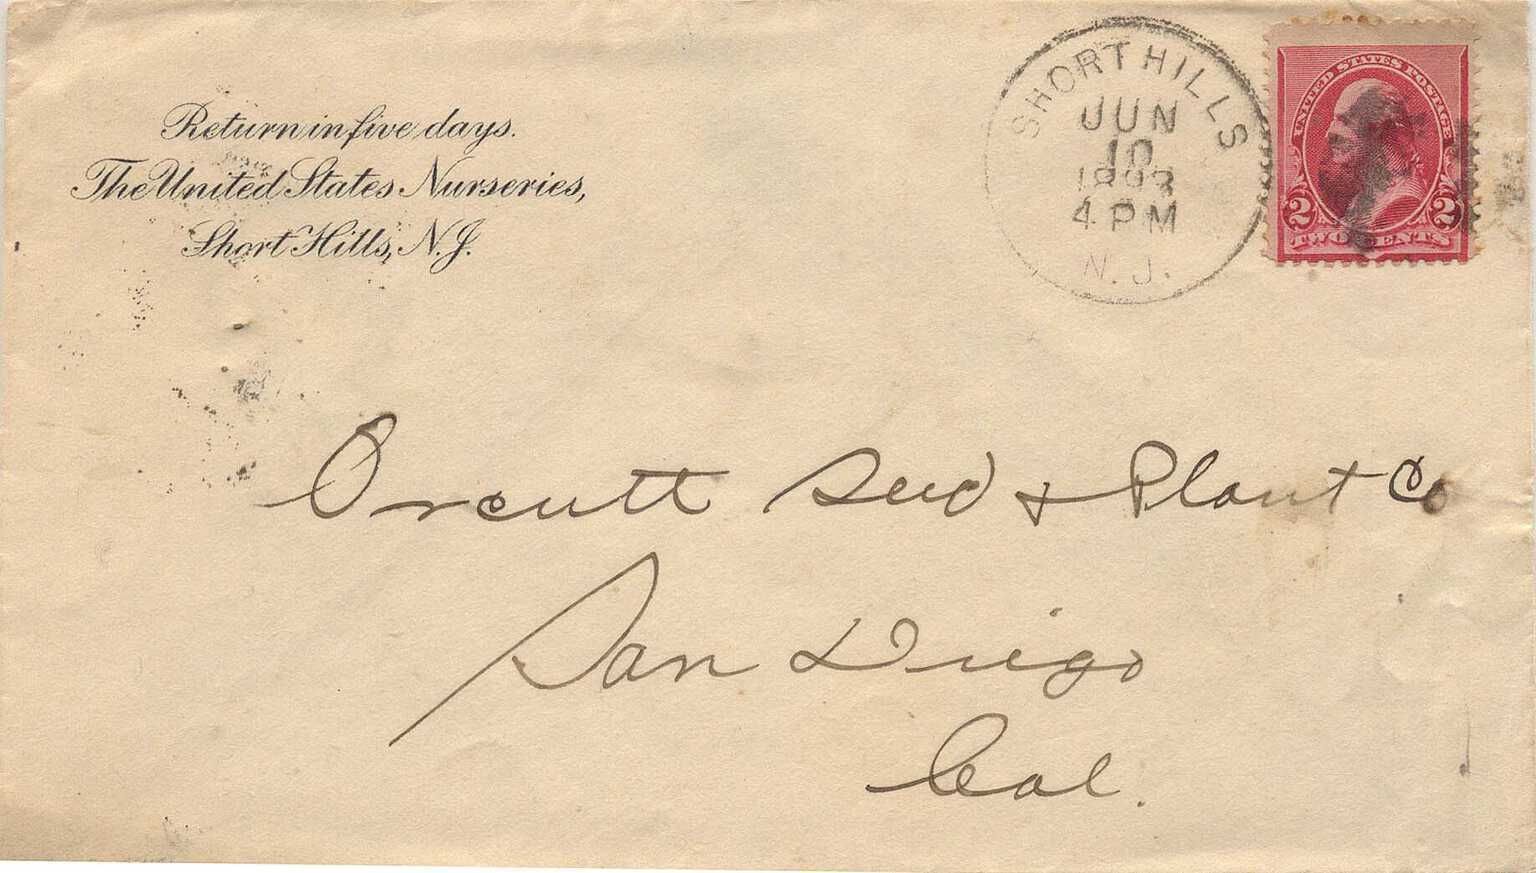 Return in five days.
The United States Nurseries,
Short Hills, N.J.
SHORT HILLS
JUN
10
1893
4 PM
N. J.
UNITED STATES POSTAGE
2 2
TWO CENTS
Orcutt Seed & Plant Co
San Diego
Cal.